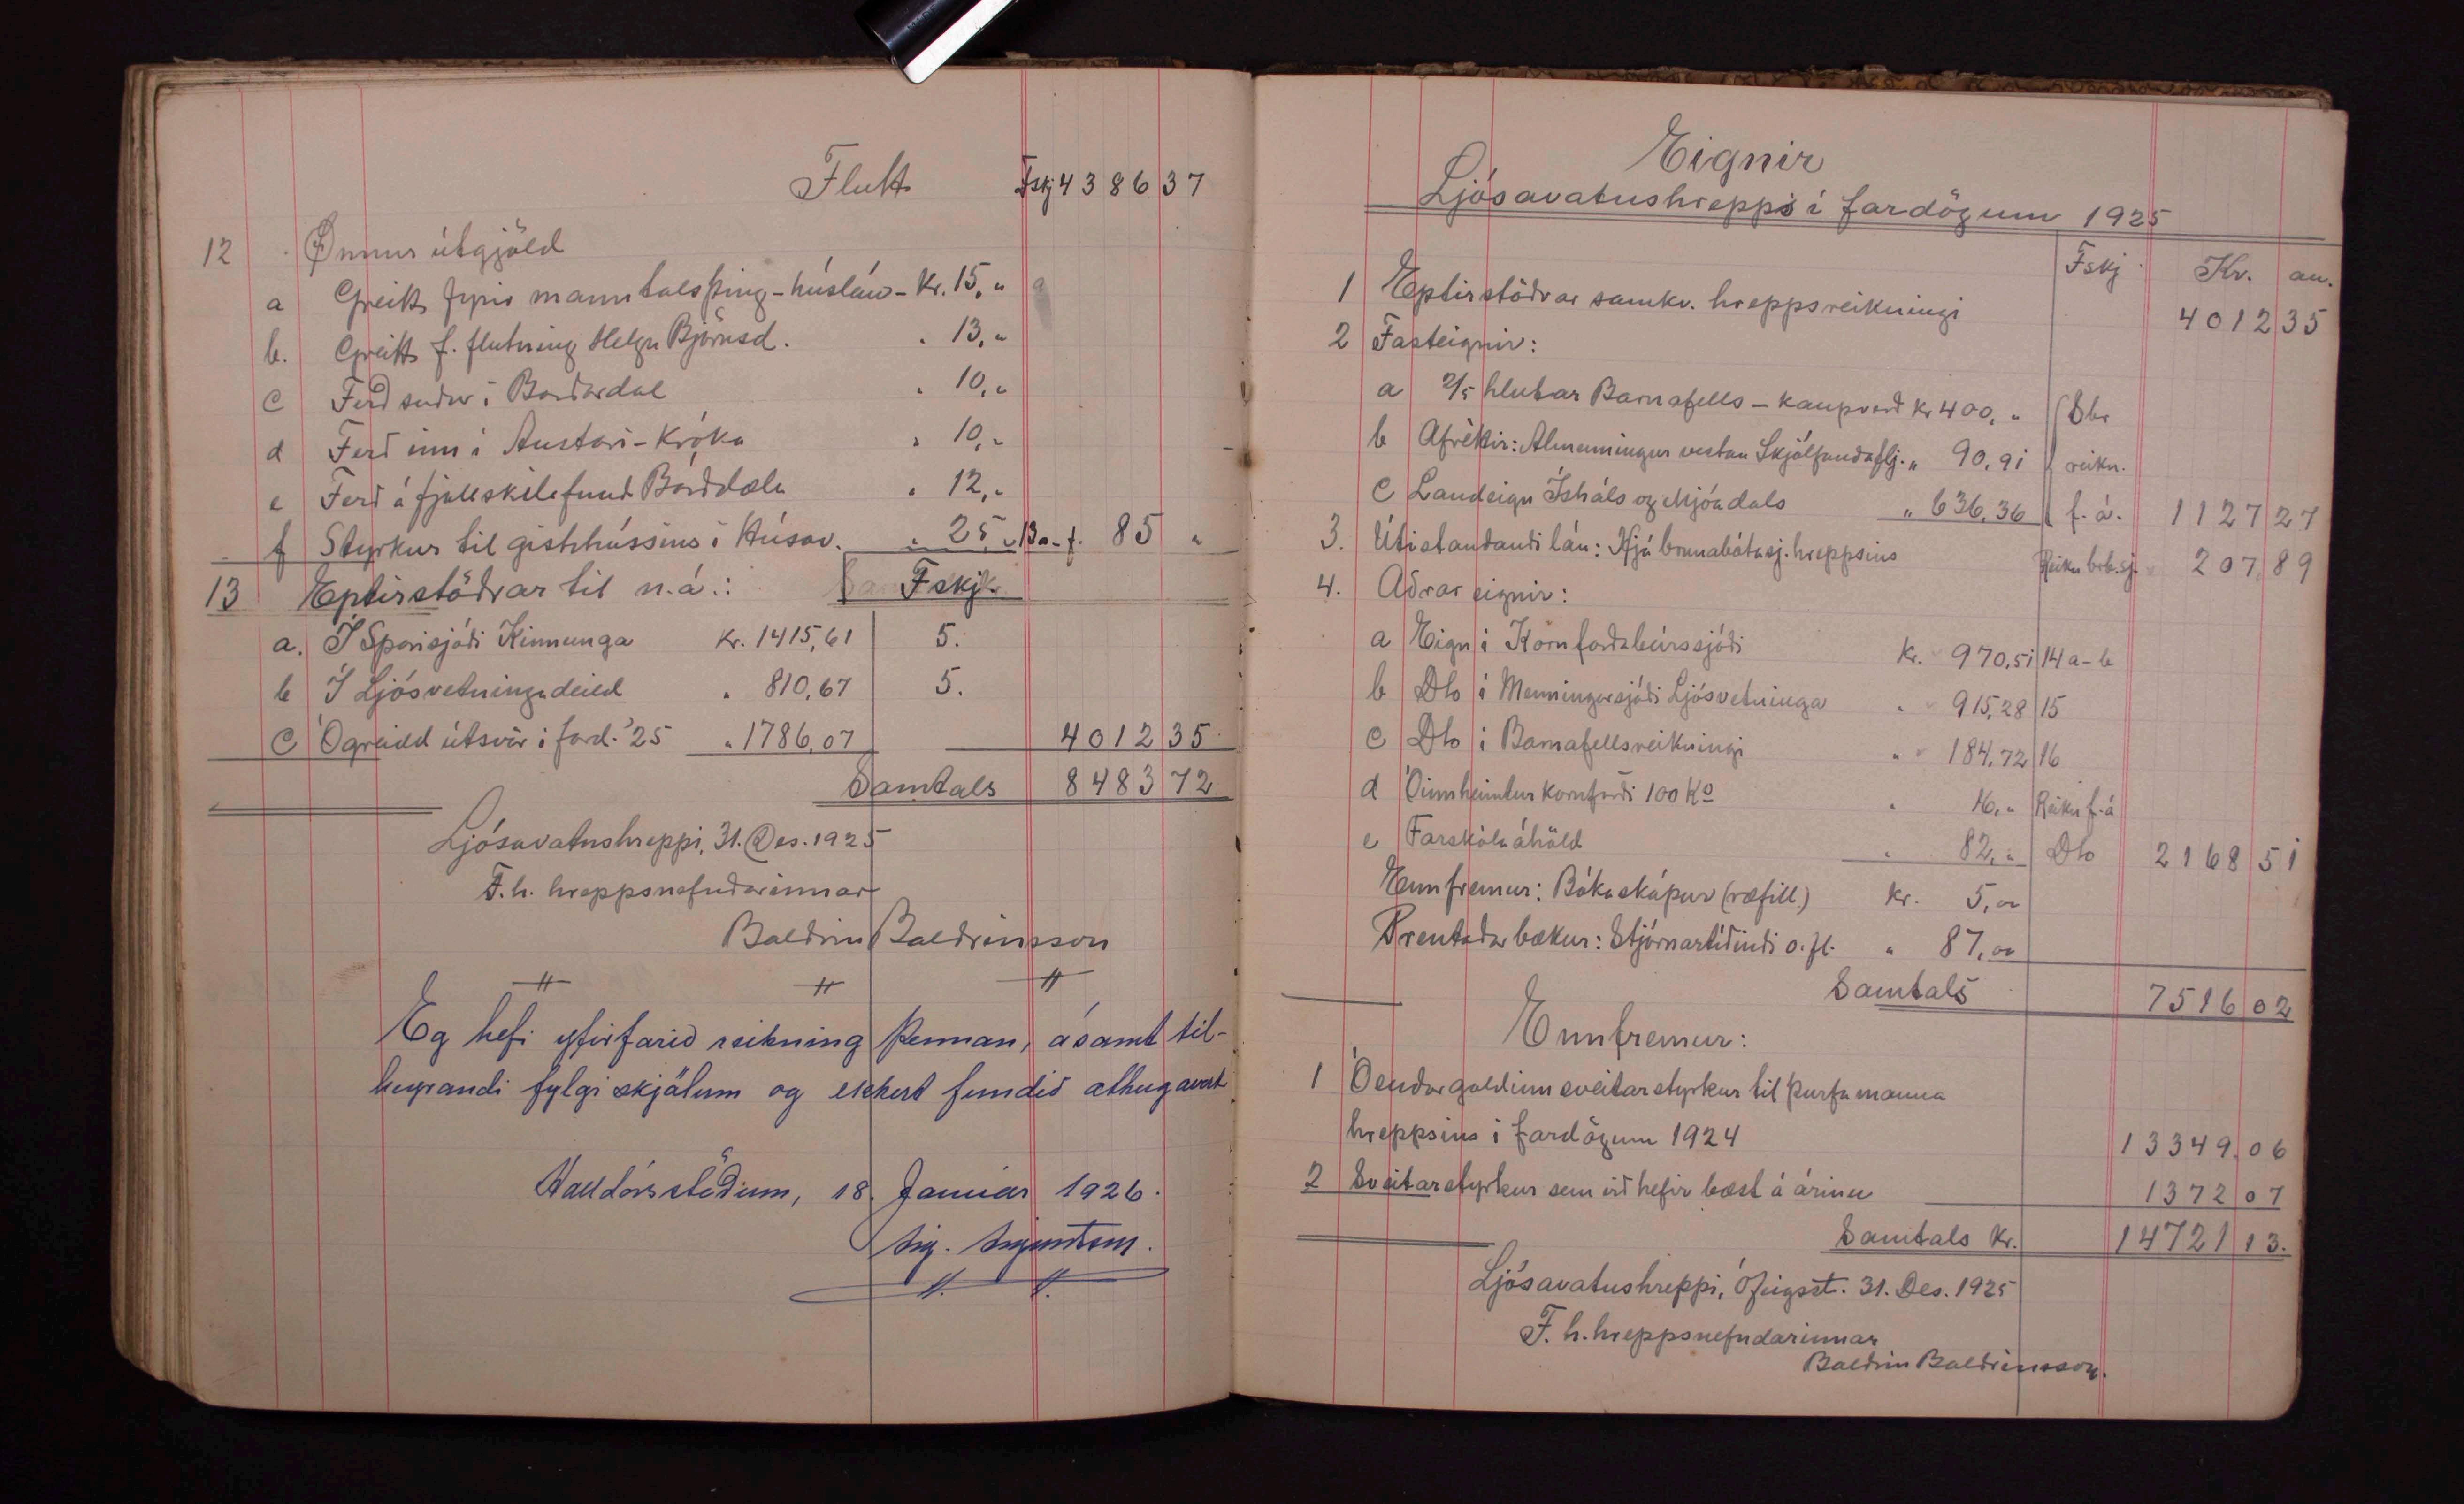 Flutt Fskj 4386 37
12 Önnur útgjöld
a Greitt fyrir manntalsþing-húslán - Kr. 15, "
b. Greitt f. flutning Helgu Björnsd. " 13, "
c Ferð suður í Bárðardal " 10, "
d Ferð inn í Austari-Króka " 10, "
e Ferð á fjallskilafund Bárðdæla " 12, "
f Styrkur til gistihússins í Húsav. " 25, " 13 a-f. 85 "
13 Eptirstöðvar til n.á.: Fskj.
a. Í Sparisjóði Kinnunga Kr. 1415,61 5.
b Í Ljósvetningadeild " 810,67 5.
c Ógreidd útsvör í fard. '25 " 1786,07 4012 35
Samtals 8483 72
Ljósavatnshreppi, 31. Des. 1925
F.h. hreppsnefndarinnar
Baldvin Baldvinsson
Eg hefi yfirfarið reikning þennan, ásamt til-
heyrandi fylgiskjölum og ekkert fundið athugavert
Halldórsstöðum, 18. Januar 1926.
Sig. Sigurðsson.
Eignir
Ljósavatnshrepps í fardögum 1925
Fskj Kr. au.
1 Eptirstöðvar samkv. hreppsreikningi 4012 35
2 Fasteignir:
a 2/5 hlutar Barnafells - kaupverð kr 400, " Sbr
b Afréttir: Almenningur vestan Skjálfandaflj. " 90,91 reikn.
c Landeign Íshóls og Mjóadals " 636,36 f. á. 1127 27
3. Útistandandi lán: Hjá brunabótasj. hreppsins Reikn brb.sj. 207 89
4. Aðrar eignir:
a Eign í Kornforðabúrssjóði Kr. 970,51 14 a-b
b Do í Menningarsjóði Ljósvetninga " 915,28 15
c Do í Barnafellsreikningi " 184,72 16
d Óinnheimtur kornforði 100 Ko " 16, " Reikn f. á
e Farskólaáhöld " 82, " Do 2168 51
Ennfremur: Bókaskápur (ræfill) Kr. 5,00
Prentaðar bækur: Stjórnartíðindi o. fl. " 87,00
Samtals 7516 02
Ennfremur:
1 Óendurgoldinn sveitarstyrkur til þurfamanna
hreppsins í fardögum 1924 13349 06
2 Sveitarstyrkur sem við hefir bæst á árinu 1372 07
Samtals Kr. 14721 13.
Ljósavatnshreppi, Ófeigsst. 31. Des. 1925
F. h. hreppsnefndarinnar
Baldvin Baldvinsson.